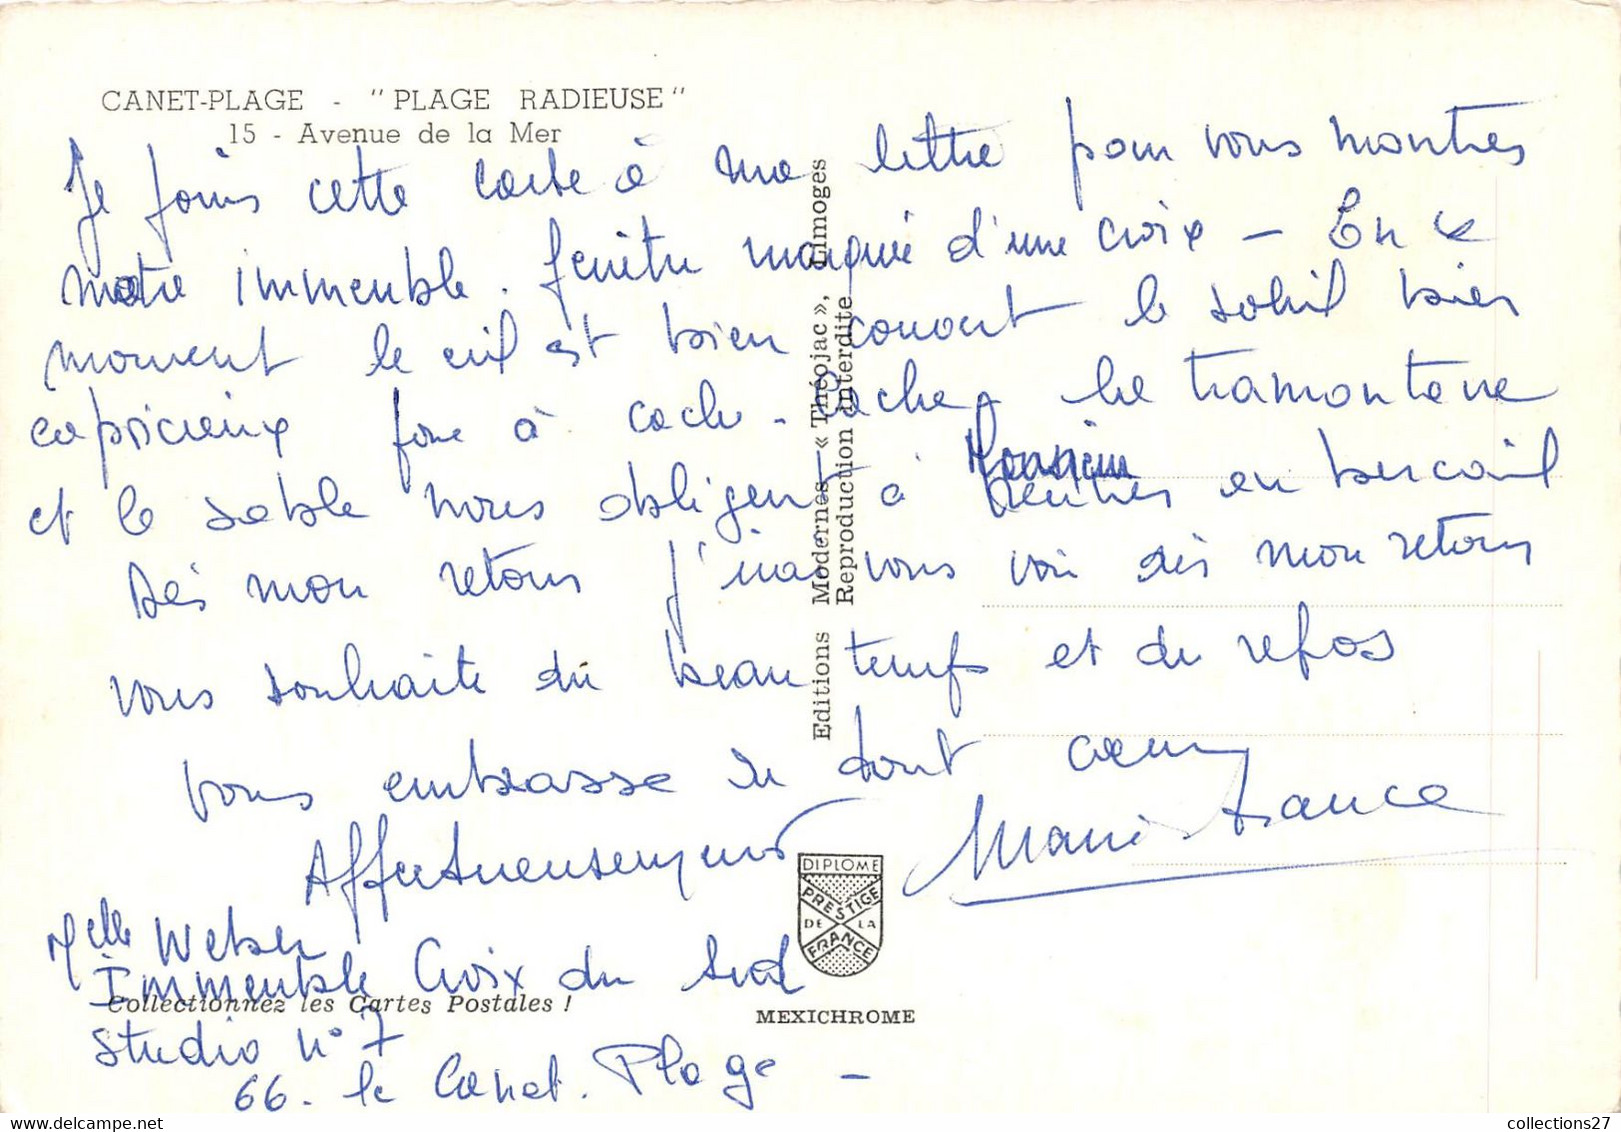 CANET-PLAGE - "PLAGE RADIEUSE"
15 - Avenue de la Mer
Je joins cette carte à ma lettre pour vous montrer
notre immeuble. fenêtre marquée d'une croix - En ce
moment le ciel est bien couvert le soleil bien
capricieux joue à cache-cache. La tramontane
et le sable nous obligent à rentrer au bercail
Dès mon retour j'irai vous voir dès mon retour
vous souhaite du beau temps et du repos
vous embrasse de tout coeur
Affectueusement Marie France
Melle Weber
Immeuble Croix du Sud
Studio n° 7
66 - le Canet. Plage -
Collectionnez les Cartes Postales !
Editions Modernes « Théojac », Limoges
Reproduction interdite
DIPLOME
PRESTIGE
DE LA
FRANCE
MEXICHROME
collections27